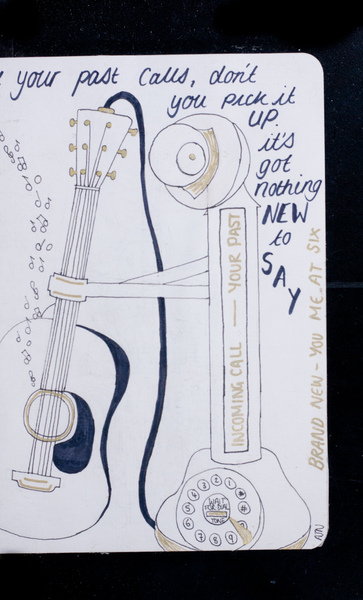 your past calls, don't
you pick it
UP.
it's
got
nothing
NEW
to
SAY
INCOMING CALL — YOUR PAST
BRAND NEW - YOU ME AT SIX
WAIT
FOR DIAL
TONE